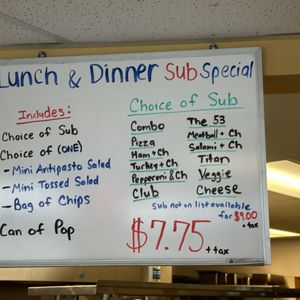 Lunch & Dinner Sub Special
Includes:
Choice of Sub
Choice of (ONE)
- Mini Antipasto Salad
- Mini Tossed Salad
- Bag of Chips
Can of Pop
Choice of Sub
Combo
Pizza
Ham + Ch
Turkey + Ch
Pepperoni & Ch
Club
The 53
Meatball + Ch
Salami + Ch
Titan
Veggie
Cheese
Sub not on list available
for $9.00
+ tax
$7.75 + tax